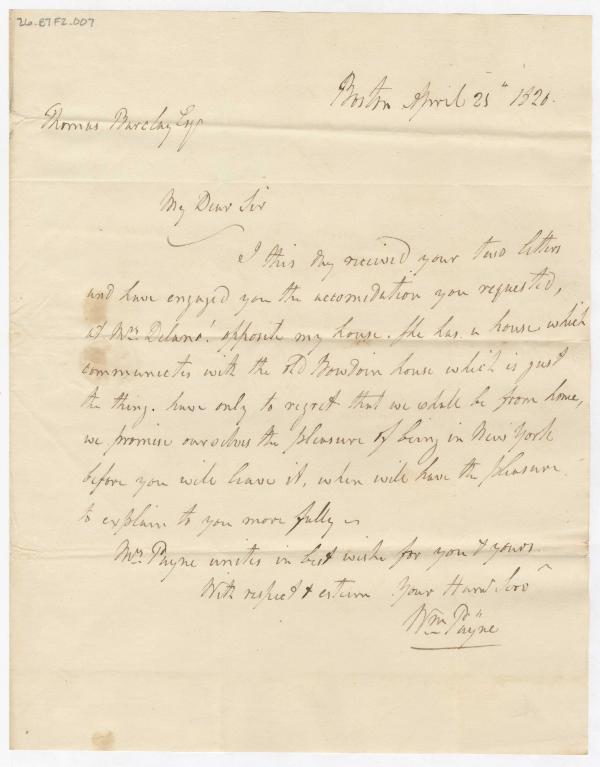 26.E7F2.007
Boston April 25" 1820.
Thomas Barclay Esqr
My Dear Sir
I this day received your two letters
and have engaged you the accomidation you requested,
at Mrs. Delano! opposite my house. She has a house which
communicates with the old Bowdoin house which is just
the thing. have only to regret that we shall be from home,
we promise ourselves the pleasure of being in New York
before you will leave it, when will have the pleasure
to explain to you more fully
Mrs. Payne unites in best wishe for you & yours.
With respect & esteem Your
Wm Payne